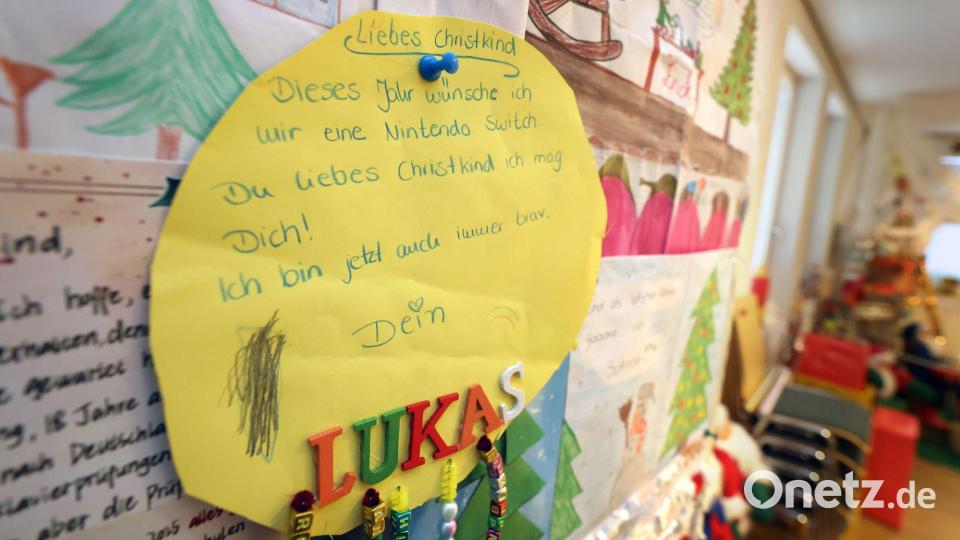 Liebes Christkind
Dieses Jahr wünsche ich
mir eine Nintendo Switch.
Du liebes Christkind ich mag
Dich!
Ich bin jetzt auch immer brav.
Dein
LUKAS
ind,
ich hoffe,
gewartet
18 Jahre
nach Deutschla
Klavierprüfungen
aber die Prüf
2025 alles
Onetz.de